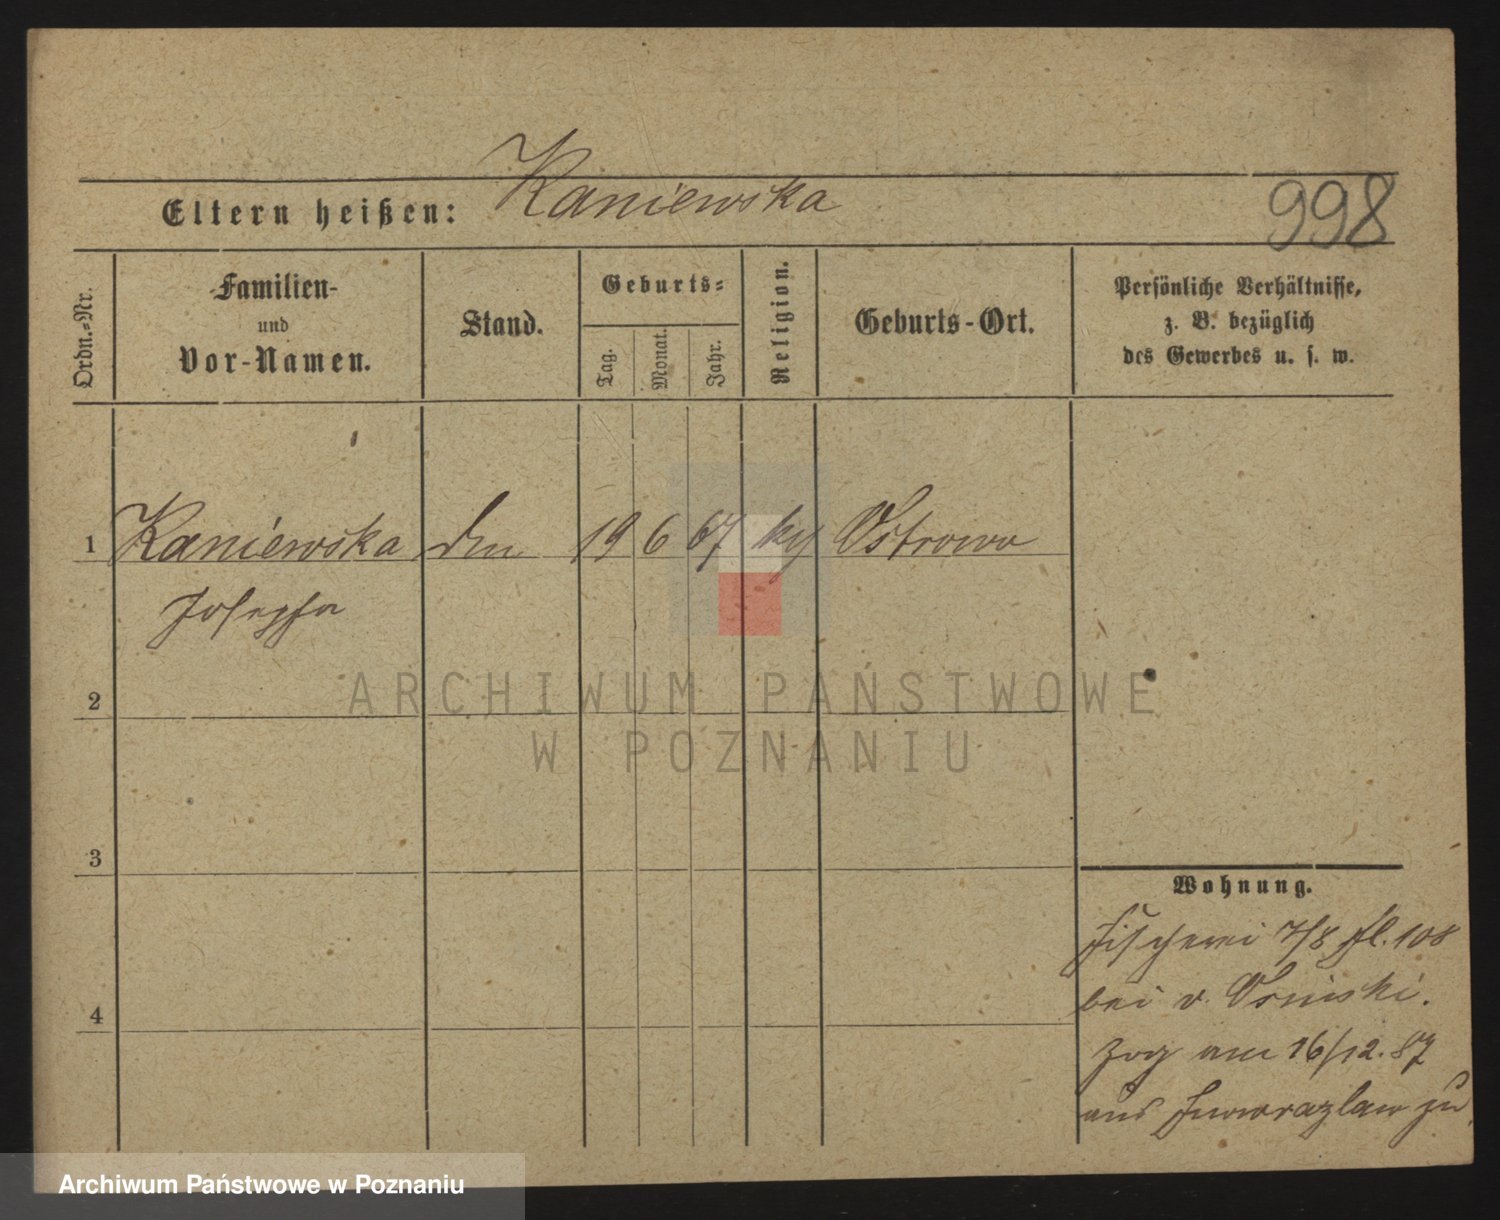 Kaniewska
Eltern heißen:
998
Ordn.-Nr.
Familien-
und
Vor-Namen.
Stand.
Geburts-
Tag.
Monat.
Jahr.
Religion.
Geburts-Ort.
Persönliche Verhältnisse,
z. B. bezüglich
des Gewerbes u. s. w.
1 Kaniewska 19 6 67 Ostrowo
Josepha
2
3
4
Wohnung.
Fischerei 7/8 fl. 108
bei v. Osinski.
zog am 16/12. 87
aus Inowrazlaw zu
ARCHIWUM PAŃSTWOWE
W POZNANIU
Archiwum Państwowe w Poznaniu